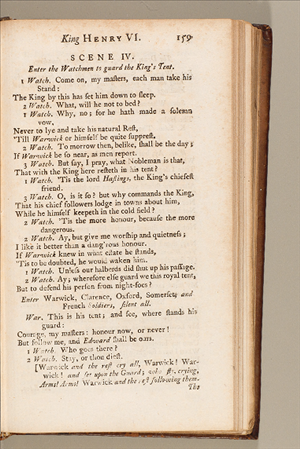 King HENRY VI. 159
SCENE IV.
Enter the Watchmen to guard the King's Tent.
1 Watch. Come on, my masters, each man take his
Stand:
The King by this has set him down to sleep.
2 Watch. What, will he not to bed?
1 Watch. Why, no; for he hath made a solemn
vow,
Never to lye and take his natural Rest,
'Till Warwick or himself be quite supprest.
2 Watch. To morrow then, belike, shall be the day;
If Warwick be so near, as men report.
3 Watch. But say, I pray, what Nobleman is that,
That with the King here resteth in his tent?
1 Watch. 'Tis the lord Hastings, the King's chiefest
friend.
3 Watch. O, is it so? but why commands the King,
That his chief followers lodge in towns about him,
While he himself keepeth in the cold field?
2 Watch. 'Tis the more honour, because the more
dangerous.
3 Watch. Ay, but give me worship and quietness;
I like it better than a dang'rous honour.
If Warwick knew in what estate he stands,
'Tis to be doubted, he would waken him.
1 Watch. Unless our halberds did shut up his passage.
2 Watch. Ay; wherefore else guard we this royal tent,
But to defend his person from night-foes?
Enter Warwick, Clarence, Oxford, Somerset, and
French Soldiers, silent all.
War. This is his tent; and see, where stands his
guard:
Courage, my masters: honour now, or never!
But follow me, and Edward shall be ours.
1 Watch. Who goes there?
2 Watch. Stay, or thou diest.
[Warwick and the rest cry all, Warwick! War-
wick! and set upon the Guard; who fly, crying,
Arms! Arms! Warwick and the rest following them.
The